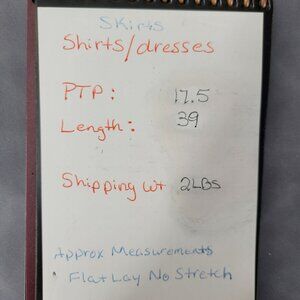 Skirts
Shirts/dresses
PTP: 17.5
Length: 39
Shipping wt 2LBS
Approx Measurements
Flat Lay No Stretch